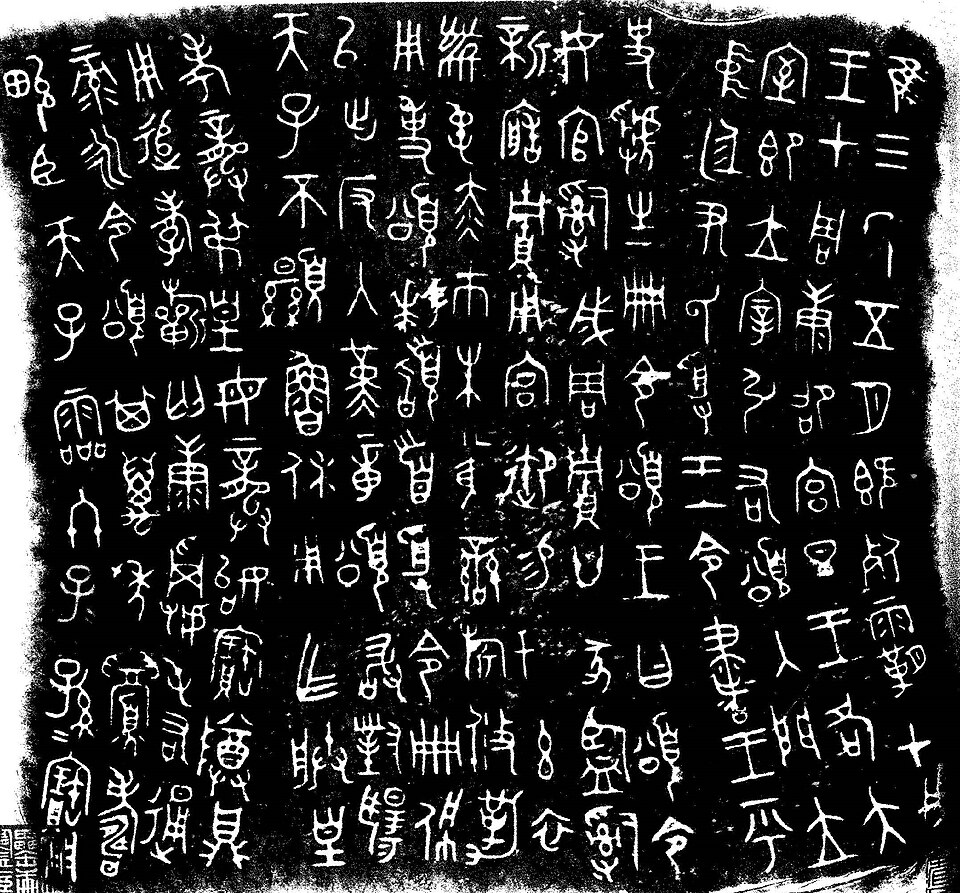 隹三年五月既死霸甲戌
王才周康卲宮旦王各大
室即立宰引右頌入門立
中廷尹氏受王令書王乎
史虢生冊令頌王曰頌令
女官𤔲成周貯廿家監𤔲
新造貯用宮御易女玄衣
黹屯赤巿朱黃䜌旂攸勒
用事頌拜𩒨首受令冊佩
以出反入堇章頌敢對揚
天子不顯魯休用乍朕皇
考龔弔皇母龔始寶尊鼎
用追孝祈匄康𩫏屯右通
彔永令頌其萬年眉壽
畯臣天子霝冬子孫=寶用